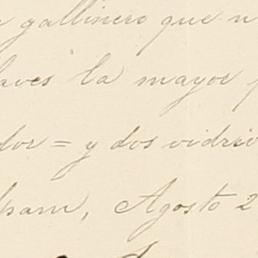 gallinero que
la mayor
dor = y dos vidrio
Agosto 2